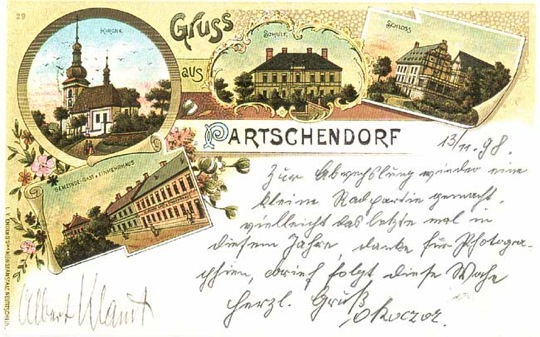 29
KIRCHE
Gruss
aus
SCHULE.
SCHLOSS
PARTSCHENDORF
GEMEINDE-GAST u. EINKEHRHAUS
13/11. 98.
Zur Abwechslung wieder eine
kleine Radpartie gemacht,
vielleicht das letzte mal in
diesem Jahre, danke für Photogra-
phien, Brief folgt diese Woche
herzl. Gruß
Albert Klamt